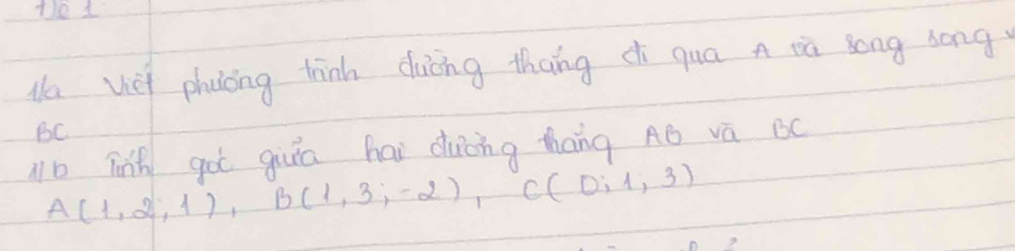 1/a Viết phương trình đường thẳng đi qua A và song song
BC
1/b Tính góc giữa hai đường thẳng AB và BC
A(1,2;1), B(1,3;-2), C(0;1,3)